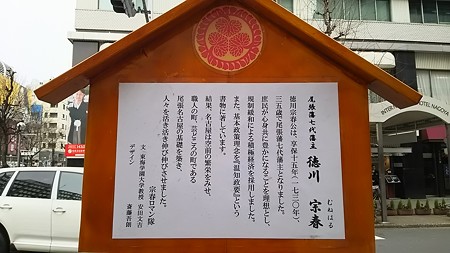 尾張藩七代藩主 徳川 宗春
むねはる
徳川宗春公は、享保十五年(一七三〇年)、
三五歳で尾張藩七代藩主となりました。
庶民が心身共に豊かになることを理想とし、
規制緩和による積極経済を採用しました。
また、基本政策理念を『温知政要』という
書物に著しています。
結果、名古屋は空前の繁栄をみせ、
職人の町、芸どころの町である
尾張名古屋の基礎を築き、
人々を活き活き伸び伸びさせました。
宗春ロマン隊
文:東海学園大学教授 安田文吉
デザイン 斎藤吾朗
HOTEL NAGOYA